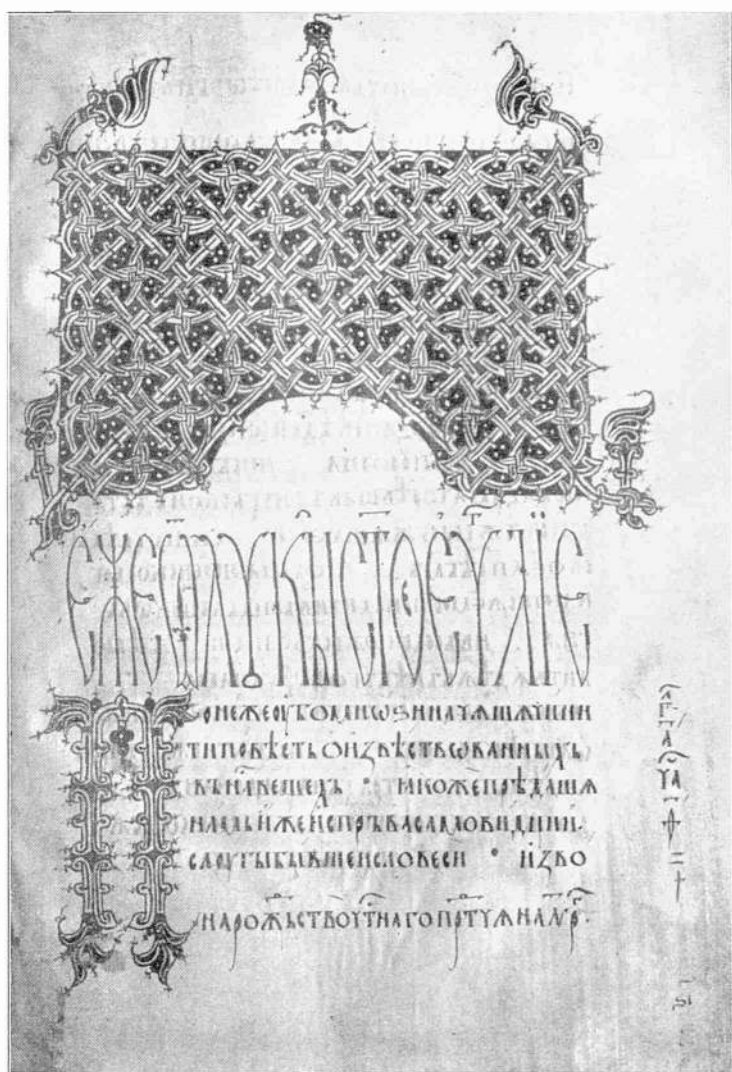 ЕЖЕѾЛꙊКЫСТ҃ОЕЕѴ҃Г҃ЛЇЕ
Понежеоубомнѡѕиначѧшѧчини
типовѣстьоизвѣствованныхъ
въна҃вещехъ · ꙗкожепрѣдашѧ
намьижеиспръвасамовидции
слоугыбывшеисловеси · изво
нарожьствочⷭ҇тнагопрⷣтчѧна